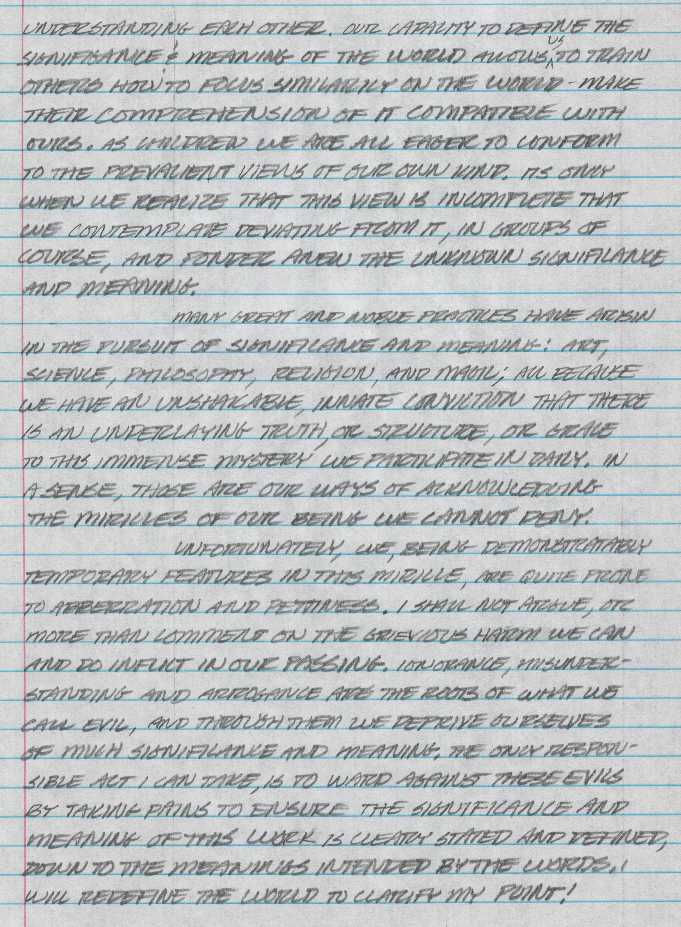 UNDERSTANDING EACH OTHER. OUR CAPACITY TO DEFINE THE
SIGNIFICANCE & MEANING OF THE WORLD ALLOWS US TO TRAIN
OTHERS HOW TO FOCUS SIMILARILY ON THE WORLD - MAKE
THEIR COMPREHENSION OF IT COMPATIBLE WITH
OURS. AS CHILDREN WE ARE ALL EAGER TO CONFORM
TO THE PREVALIENT VIEWS OF OUR OWN KIND. ITS ONLY
WHEN WE REALIZE THAT THIS VIEW IS INCOMPLETE THAT
WE CONTEMPLATE DEVIATING FROM IT, IN GROUPS OF
COURSE, AND PONDER ANEW THE UNKNOWN SIGNIFICANCE
AND MEANING.
MANY GREAT AND NOBLE PRACTICES HAVE ARISIN
IN THE PURSUIT OF SIGNIFICANCE AND MEANING: ART,
SCIENCE, PHILOSOPHY, RELIGION, AND MAGIC; ALL BECAUSE
WE HAVE AN UNSHAKABLE, INNATE CONVICTION THAT THERE
IS AN UNDERLAYING TRUTH, OR STRUCTURE, OR GRACE
TO THIS IMMENSE MYSTERY WE PARTICIPATE IN DAILY. IN
A SENSE, THOSE ARE OUR WAYS OF ACKNOWLEDGING
THE MIRICLES OF OUR BEING WE CANNOT DENY.
UNFORTUNATELY, WE, BEING DEMONSTRATABLY
TEMPORARY FEATURES IN THIS MIRICLE, ARE QUITE PRONE
TO ABBERRATION AND PETTINESS. I SHALL NOT ARGUE, OR
MORE THAN COMMENT ON THE GRIEVIOUS HARM WE CAN
AND DO INFLICT IN OUR PASSING. IGNORANCE, MISUNDER-
STANDING AND ARROGANCE ARE THE ROOTS OF WHAT WE
CALL EVIL, AND THROUGH THEM WE DEPRIVE OURSELVES
OF MUCH SIGNIFICANCE AND MEANING. THE ONLY RESPON-
SIBLE ACT I CAN TAKE, IS TO WARD AGAINST THESE EVILS
BY TAKING PAINS TO ENSURE THE SIGNIFICANCE AND
MEANING OF THIS WORK IS CLEARY STATED AND DEFINED,
DOWN TO THE MEANINGS INTENDED BY THE WORDS. I
WILL REDEFINE THE WORLD TO CLARIFY MY POINT!